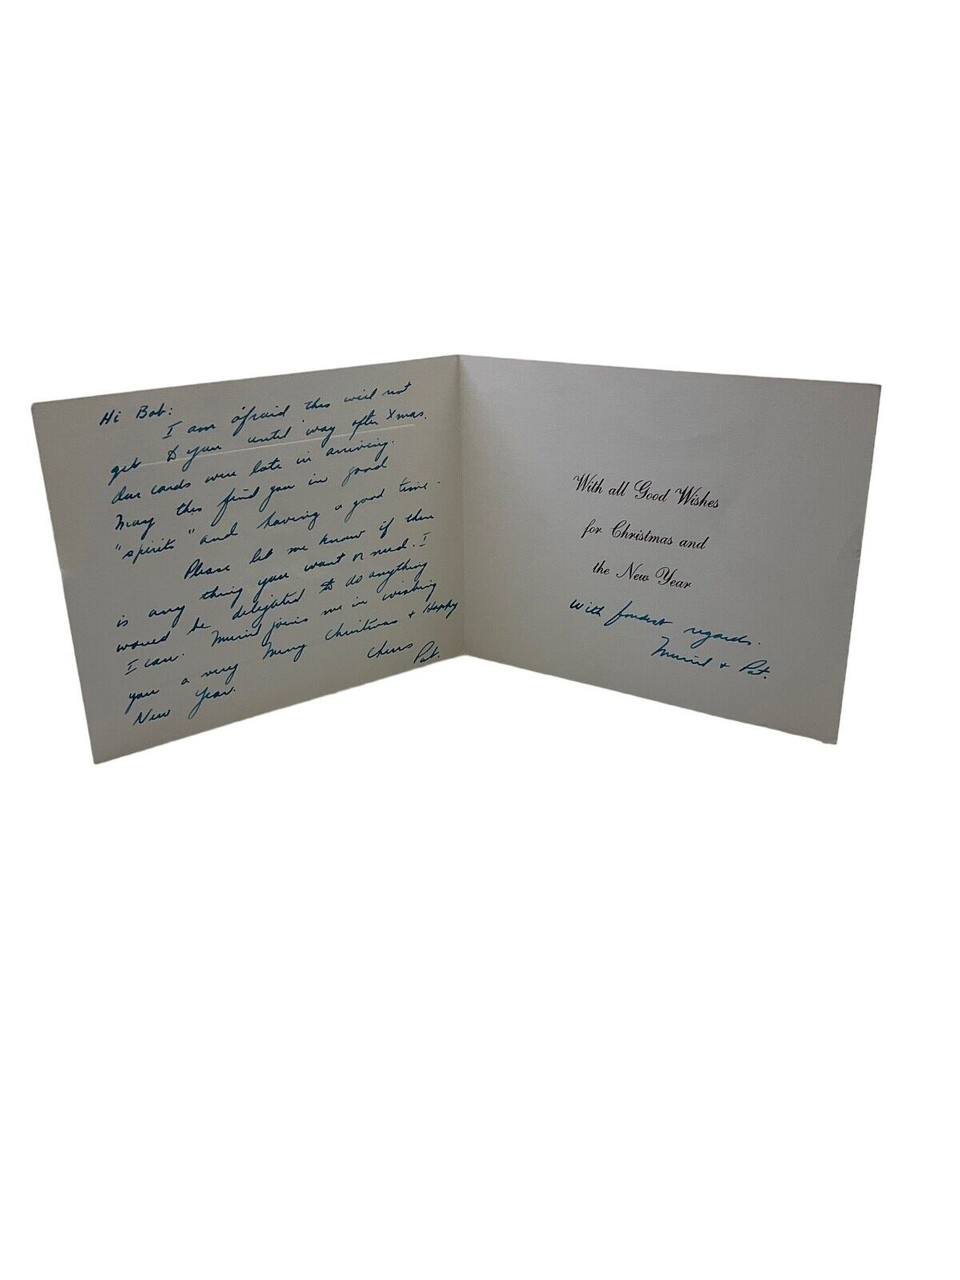 Hi Bob:
I am afraid this will not
get to you until way after Xmas.
Our cards were late in arriving.
May this find you in good
"spirits" and having a good time.
Please let me know if there
is any thing you want or need. I
would be delighted to do anything
I can. Muriel joins me in wishing
you a very Merry Christmas + Happy
New Year.
Cheers
Pat.
With all Good Wishes
for Christmas and
the New Year
With fondest regards.
Muriel + Pat.